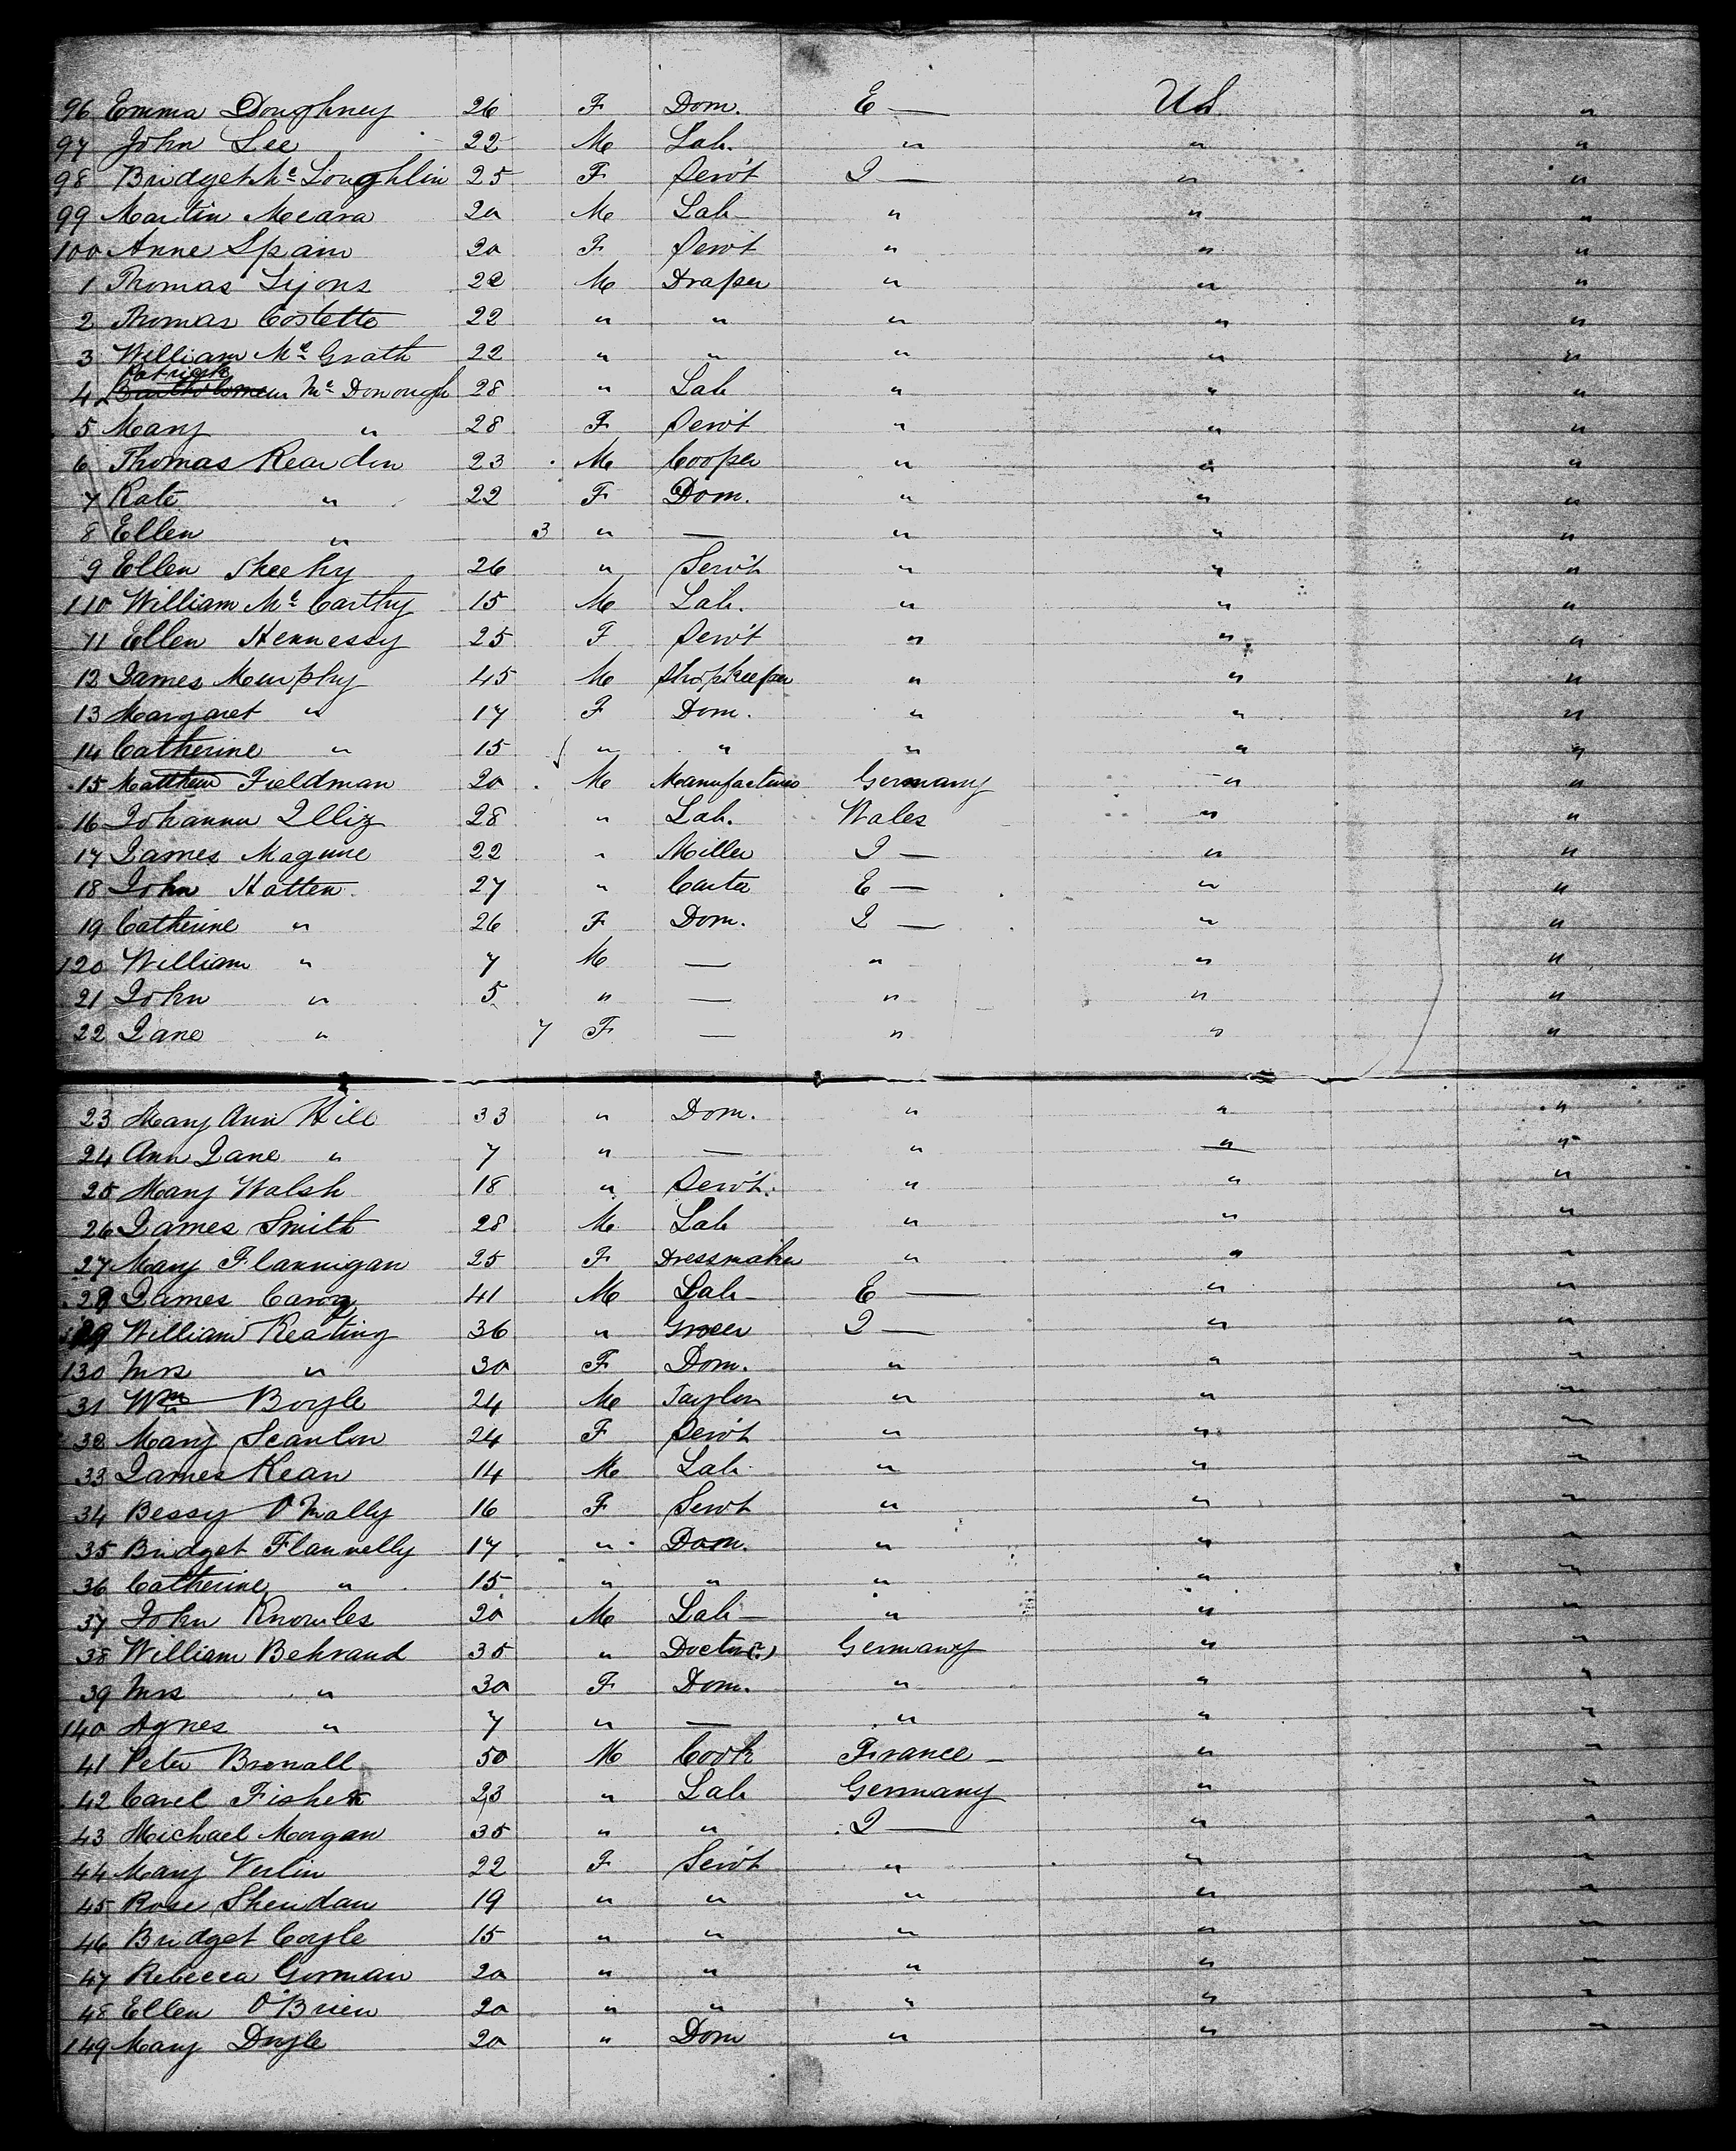 96 Emma Doughney 26 F Dom. E — U.S. "
97 John Lee 22 M Lab. " " "
98 Bridget Mc Loughlin 25 F Serv't I — " "
99 Martin Meara 20 M Lab " " "
100 Anne Spain 20 F Serv't " " "
1 Thomas Lyons 22 M Draper " " "
2 Thomas Costello 22 " " " " "
3 William Mc Grath 22 " " " " "
Patrick
4 Bartholomew Mc Donough 28 " Lab " " "
5 Mary " 28 F Serv't " " "
6 Thomas Reardon 23 M Cooper " " "
7 Kate " 22 F Dom. " " "
8 Ellen " 3 " — " " "
9 Ellen Sheehy 26 " Serv't " " "
110 William Mc Carthy 15 M Lab. " " "
11 Ellen Hennessy 25 F Serv't " " "
12 James Murphy 45 M Shopkeeper " " "
13 Margaret " 17 F Dom. " " "
14 Catherine " 15 " " " " "
15 Matthew Fieldman 20 M Manufacturer Germany " "
16 Johanna 28 " Lab. Wales " "
17 James Maguire 22 " Miller I — " "
18 John Hatten 27 " Carter E — " "
19 Catherine " 26 F Dom. I — " "
120 William " 7 M — " " "
21 John " 5 " — " " "
22 Jane " 7 F — " " "
23 Mary Ann Hill 33 " Dom. " " "
24 Ann Jane " 7 " — " " "
25 Mary Walsh 18 " Serv't. " " "
26 James Smith 28 M Lab " " "
27 Mary Flannigan 25 F Dressmaker " " "
28 James 41 M Lab — E — " "
129 William Keating 36 " Grocer I — " "
130 Mrs " 30 F Dom. " " "
31 Wm Boyle 24 M Taylor " " "
32 Mary Scanlon 24 F Serv't " " "
33 James Kean 14 M Lab " " "
34 Bessy O'Mally 16 F Serv't " " "
35 Bridget Flannelly 17 " Dom. " " "
36 Catherine " 15 " " " " "
37 John Knowles 20 M Lab — " " "
38 William Behrand 35 " Doctor(?) Germany " "
39 Mrs " 30 F Dom. " " "
140 Agnes " 7 " — " " "
41 Peter Bronall 50 M Cook France — " "
42 Carel Fisher 23 " Lab Germany " "
43 Michael Morgan 35 " " I — " "
44 Mary Verlin 22 F Serv't " " "
45 Rose Sheridan 19 " " " " "
46 Bridget Coyle 15 " " " " "
47 Rebecca Gorman 20 " " " " "
48 Ellen O'Brien 20 " " " " "
149 Mary Doyle 20 " Dom " " "